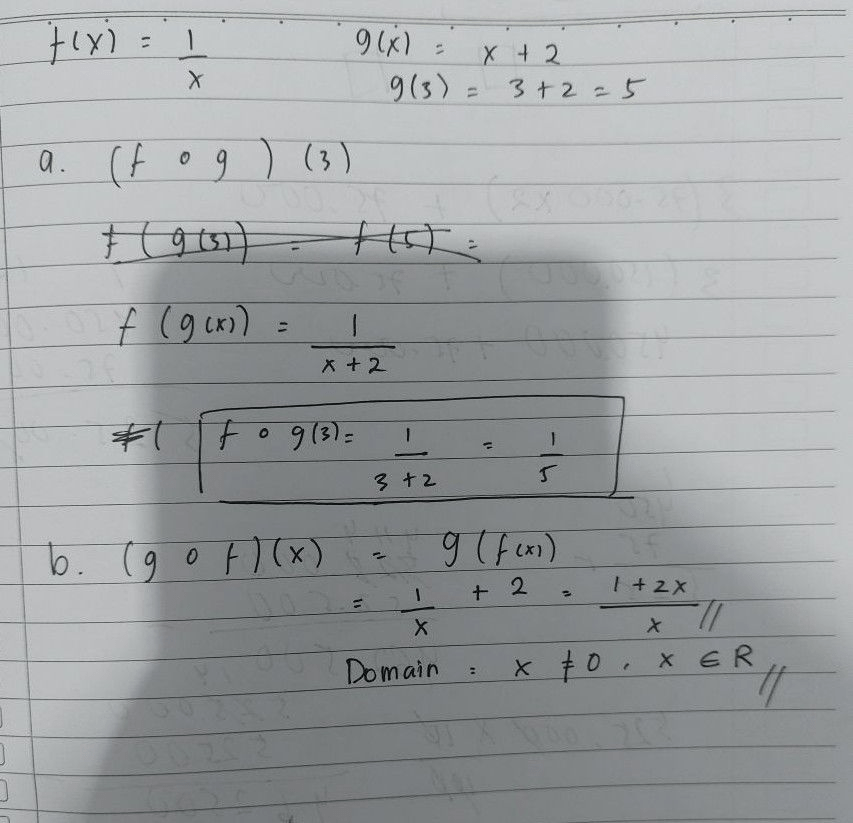 f(x) = 1/x    g(x) = x + 2
g(3) = 3 + 2 = 5
a. (f o g) (3)
f(g(3)) = f(5) =
f(g(x)) = 1/(x + 2)
f( f o g(3) = 1/(3 + 2) = 1/5
b. (g o f)(x) = g(f(x))
= 1/x + 2 = (1 + 2x)/x //
Domain : x ≠ 0, x ∈ R //